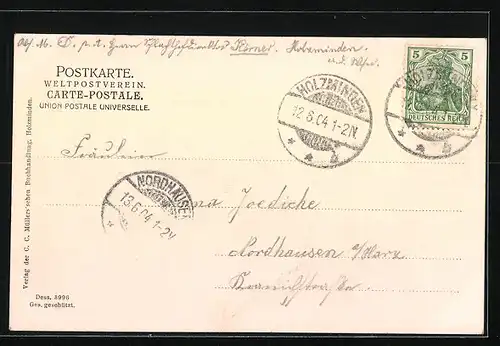 Körner
POSTKARTE.
WELTPOSTVEREIN.
CARTE-POSTALE.
UNION POSTALE UNIVERSELLE.
HOLZMINDEN
12.6.04 1-2N
5 5
DEUTSCHES REICH
Fräulein
NORDHAUSEN
13.6.04 1-2V
Joedicke
Nordhausen a/Harz
Verlag der C. C. Müllerschen Buchhandlung, Holzminden.
Dess. 3996
Ges. geschützt.